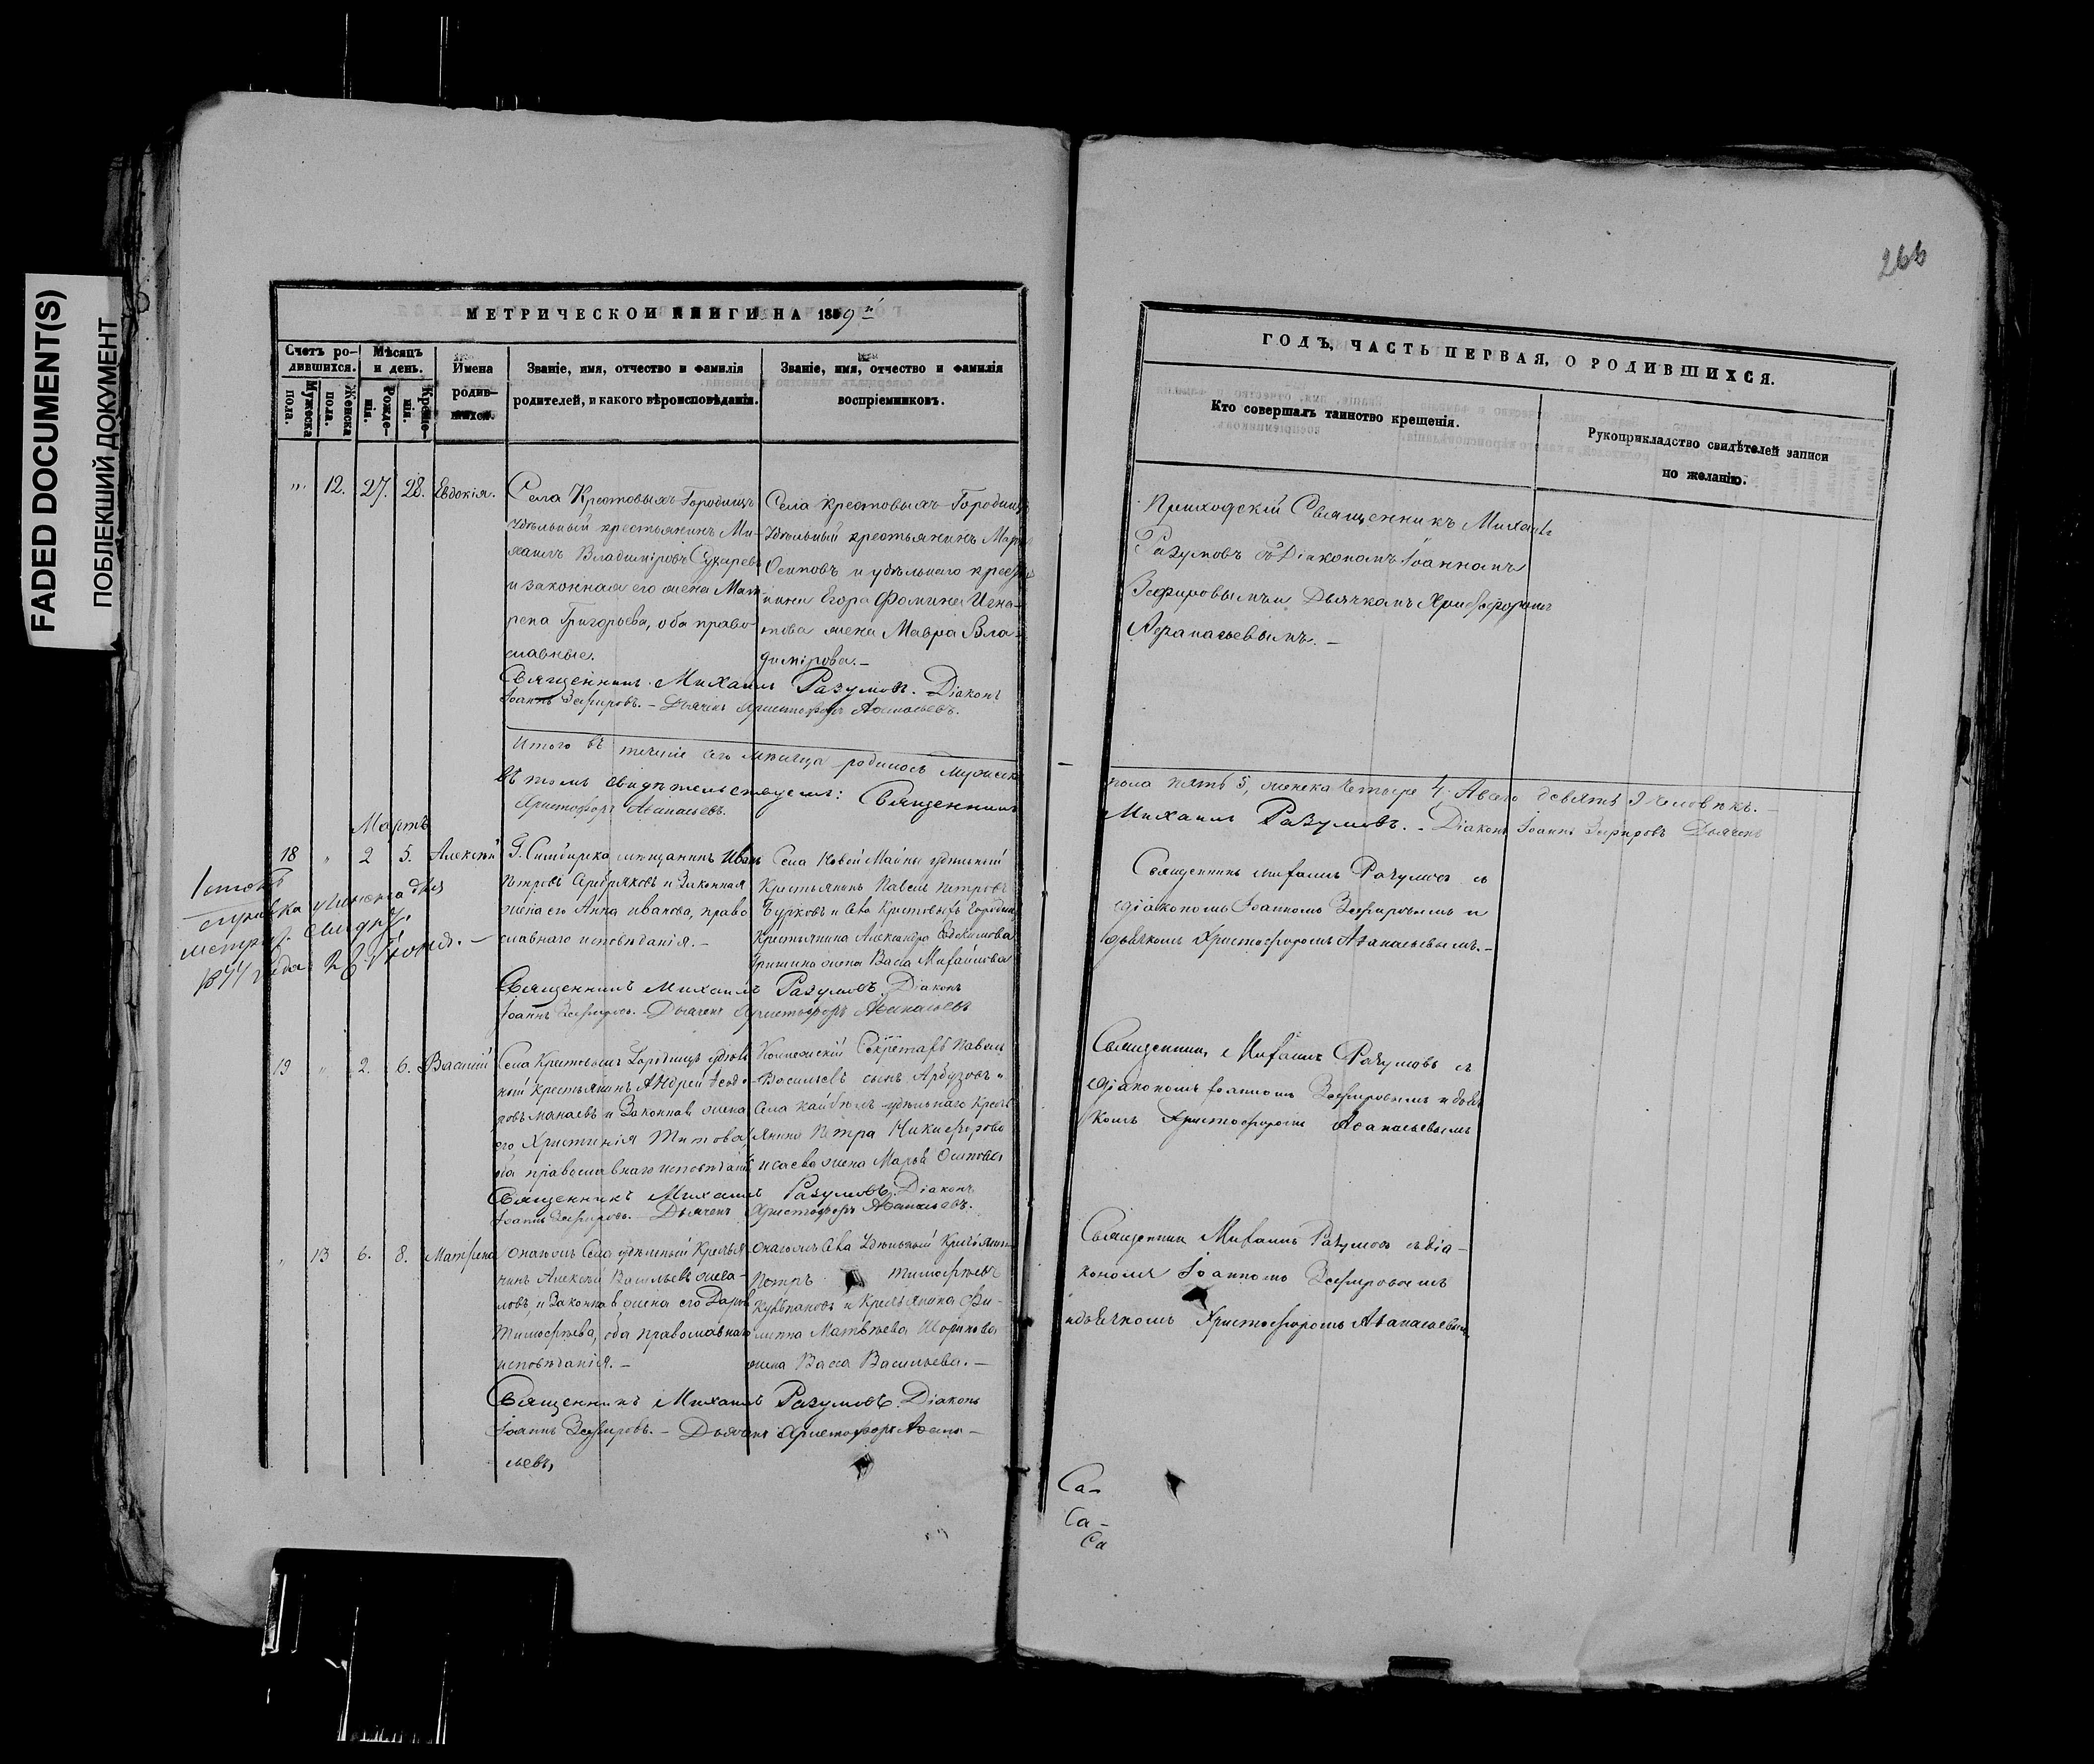 FADED DOCUMENT(S)
ПОБЛЕКШИЙ ДОКУМЕНТ
266
МЕТРИЧЕСКОЙ КНИГИ НА 1859й
Счетъ ро-
дившихся.
Мѣсяцъ
и день.
Мужеска
пола.
Женска
пола.
Рожде-
нія.
Креще-
нія.
Имена
родив-
шихся.
Званіе, имя, отчество и фамилія
родителей, и какого вѣроисповѣданія.
Званіе, имя, отчество и фамилія
воспріемниковъ.
ГОДЪ, ЧАСТЬ ПЕРВАЯ, О РОДИВШИХСЯ.
Кто совершалъ таинство крещенія.
Рукоприкладство свидѣтелей записи
по желанію.
„ 12. 27. 28. Евдокія.
Села Крестовыхъ-Городищъ
Удѣльный крестьянинъ Ми-
хаилъ Владиміровъ Сухаревъ
и законная его жена Мат-
рена Григорьева, оба право-
славные.
Села Крестовыхъ-Городищъ
Удѣльный крестьянинъ
Осиповъ и удѣльнаго
Егора Фомина Игна-
това жена Мавра Вла-
димірова.-
Приходскій Священникъ Михаилъ
Разумовъ съ Діакономъ Іоанномъ
Зефировымъ и Дьячкомъ Христофоромъ
Афанасьевымъ. –
Священникъ Михаилъ Разумовъ. Діаконъ
Іоаннъ Зефировъ. – Дьячекъ Христофоръ Аѳанасьевъ.
Итого въ теченіе сего мѣсяца родилось мужеска
пола пять 5, женска четыре 4. А всего девять 9 человѣкъ. –
Въ томъ свидѣтельствуемъ: Священникъ
Михаилъ Разумовъ. – Діаконъ Іоаннъ Зефировъ Дьячекъ
Христофоръ Аѳанасьевъ.
Мартъ
18 „ 2 5. Алексѣй
Г. Симбирска мѣщанинъ Иванъ
Петровъ Серебряковъ и Законная
жена его Анна Иванова, право
славнаго исповѣданія. –
Села Новой Майны удѣльный
Крестьянинъ Павелъ Петровъ
Бурковъ и Села Крестовыхъ Городищъ
Крестьянина Александра Евдокимова
Гришина жена Васса Михайлова
Священникъ Михаилъ Разумовъ съ
діакономъ Іоанномъ Зефировымъ и
дьячкомъ Христофоромъ Аѳанасьевымъ. –
справка учинена для
1877 года 28 Іюня. –
Священникъ Михаилъ Разумовъ Діаконъ
Іоаннъ Зефировъ. – Дьячекъ Христофоръ Аѳанасьевъ
19 „ 2. 6. Василій
Села Крестовыхъ Городищъ удѣль
ный Крестьянинъ Андрей Ѳедо-
ровъ Манаевъ и Законная жена
его Христинія Титова,
оба православнаго исповѣданія
Коллежскій Секретарь Павелъ
Васильевъ сынъ Арбузовъ и
Села Кайбелъ удѣльнаго Кресть
янина Петра Никифорова
Исаева жена Марья Осипова
Священникъ Михаилъ Разумовъ съ
діакономъ Іоанномъ Зефировымъ и дьяч
комъ Христофоромъ Аѳанасьевымъ
Священникъ Михаилъ Разумовъ. Діаконъ
Іоаннъ Зефировъ. – Дьячекъ Христофоръ Аѳанасьевъ.
„ 13 6. 8. Матрена
Онагожъ Села удѣльный Крестья
нинъ Алексѣй Васильевъ
и Законная жена его Дарья
Тимофѣева, оба православнаго
исповѣданія. –
Онагожъ Села Удѣльный Крестьянинъ
Петръ Тимофѣевъ
и Крестьянина Фи-
липпа Матвѣева
жена Васса Васильева. –
Священникъ Михаилъ Разумовъ съ діа-
кономъ Іоанномъ Зефировымъ
и дьячкомъ Христофоромъ Аѳанасьевымъ
Священникъ Михаилъ Разумовъ. Діаконъ
Іоаннъ Зефировъ. – Дьячекъ Христофоръ Аѳана-
сьевъ,
Са-
Са-
Са